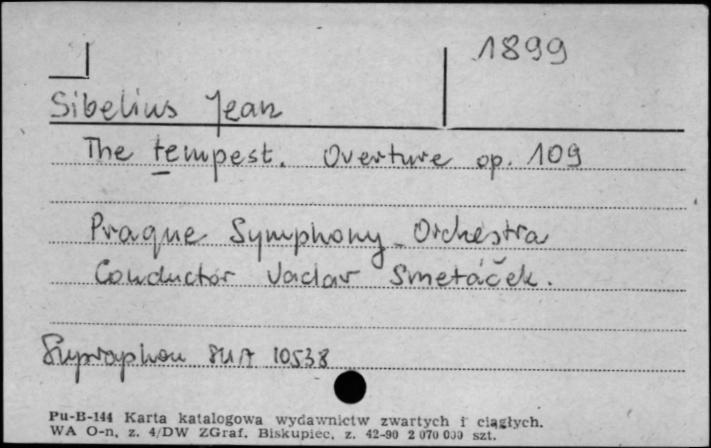 1899
Sibelius Jean
The tempest. Overture op. 109
Prague Symphony Orchestra
Conductor Vaclav Smetáček.
Supraphon SUA 10538
Pu-B-144 Karta katalogowa wydawnictw zwartych i ciągłych.
WA O-n, z. 4/DW ZGraf. Biskupiec, z. 42-90 2 070 000 szt.